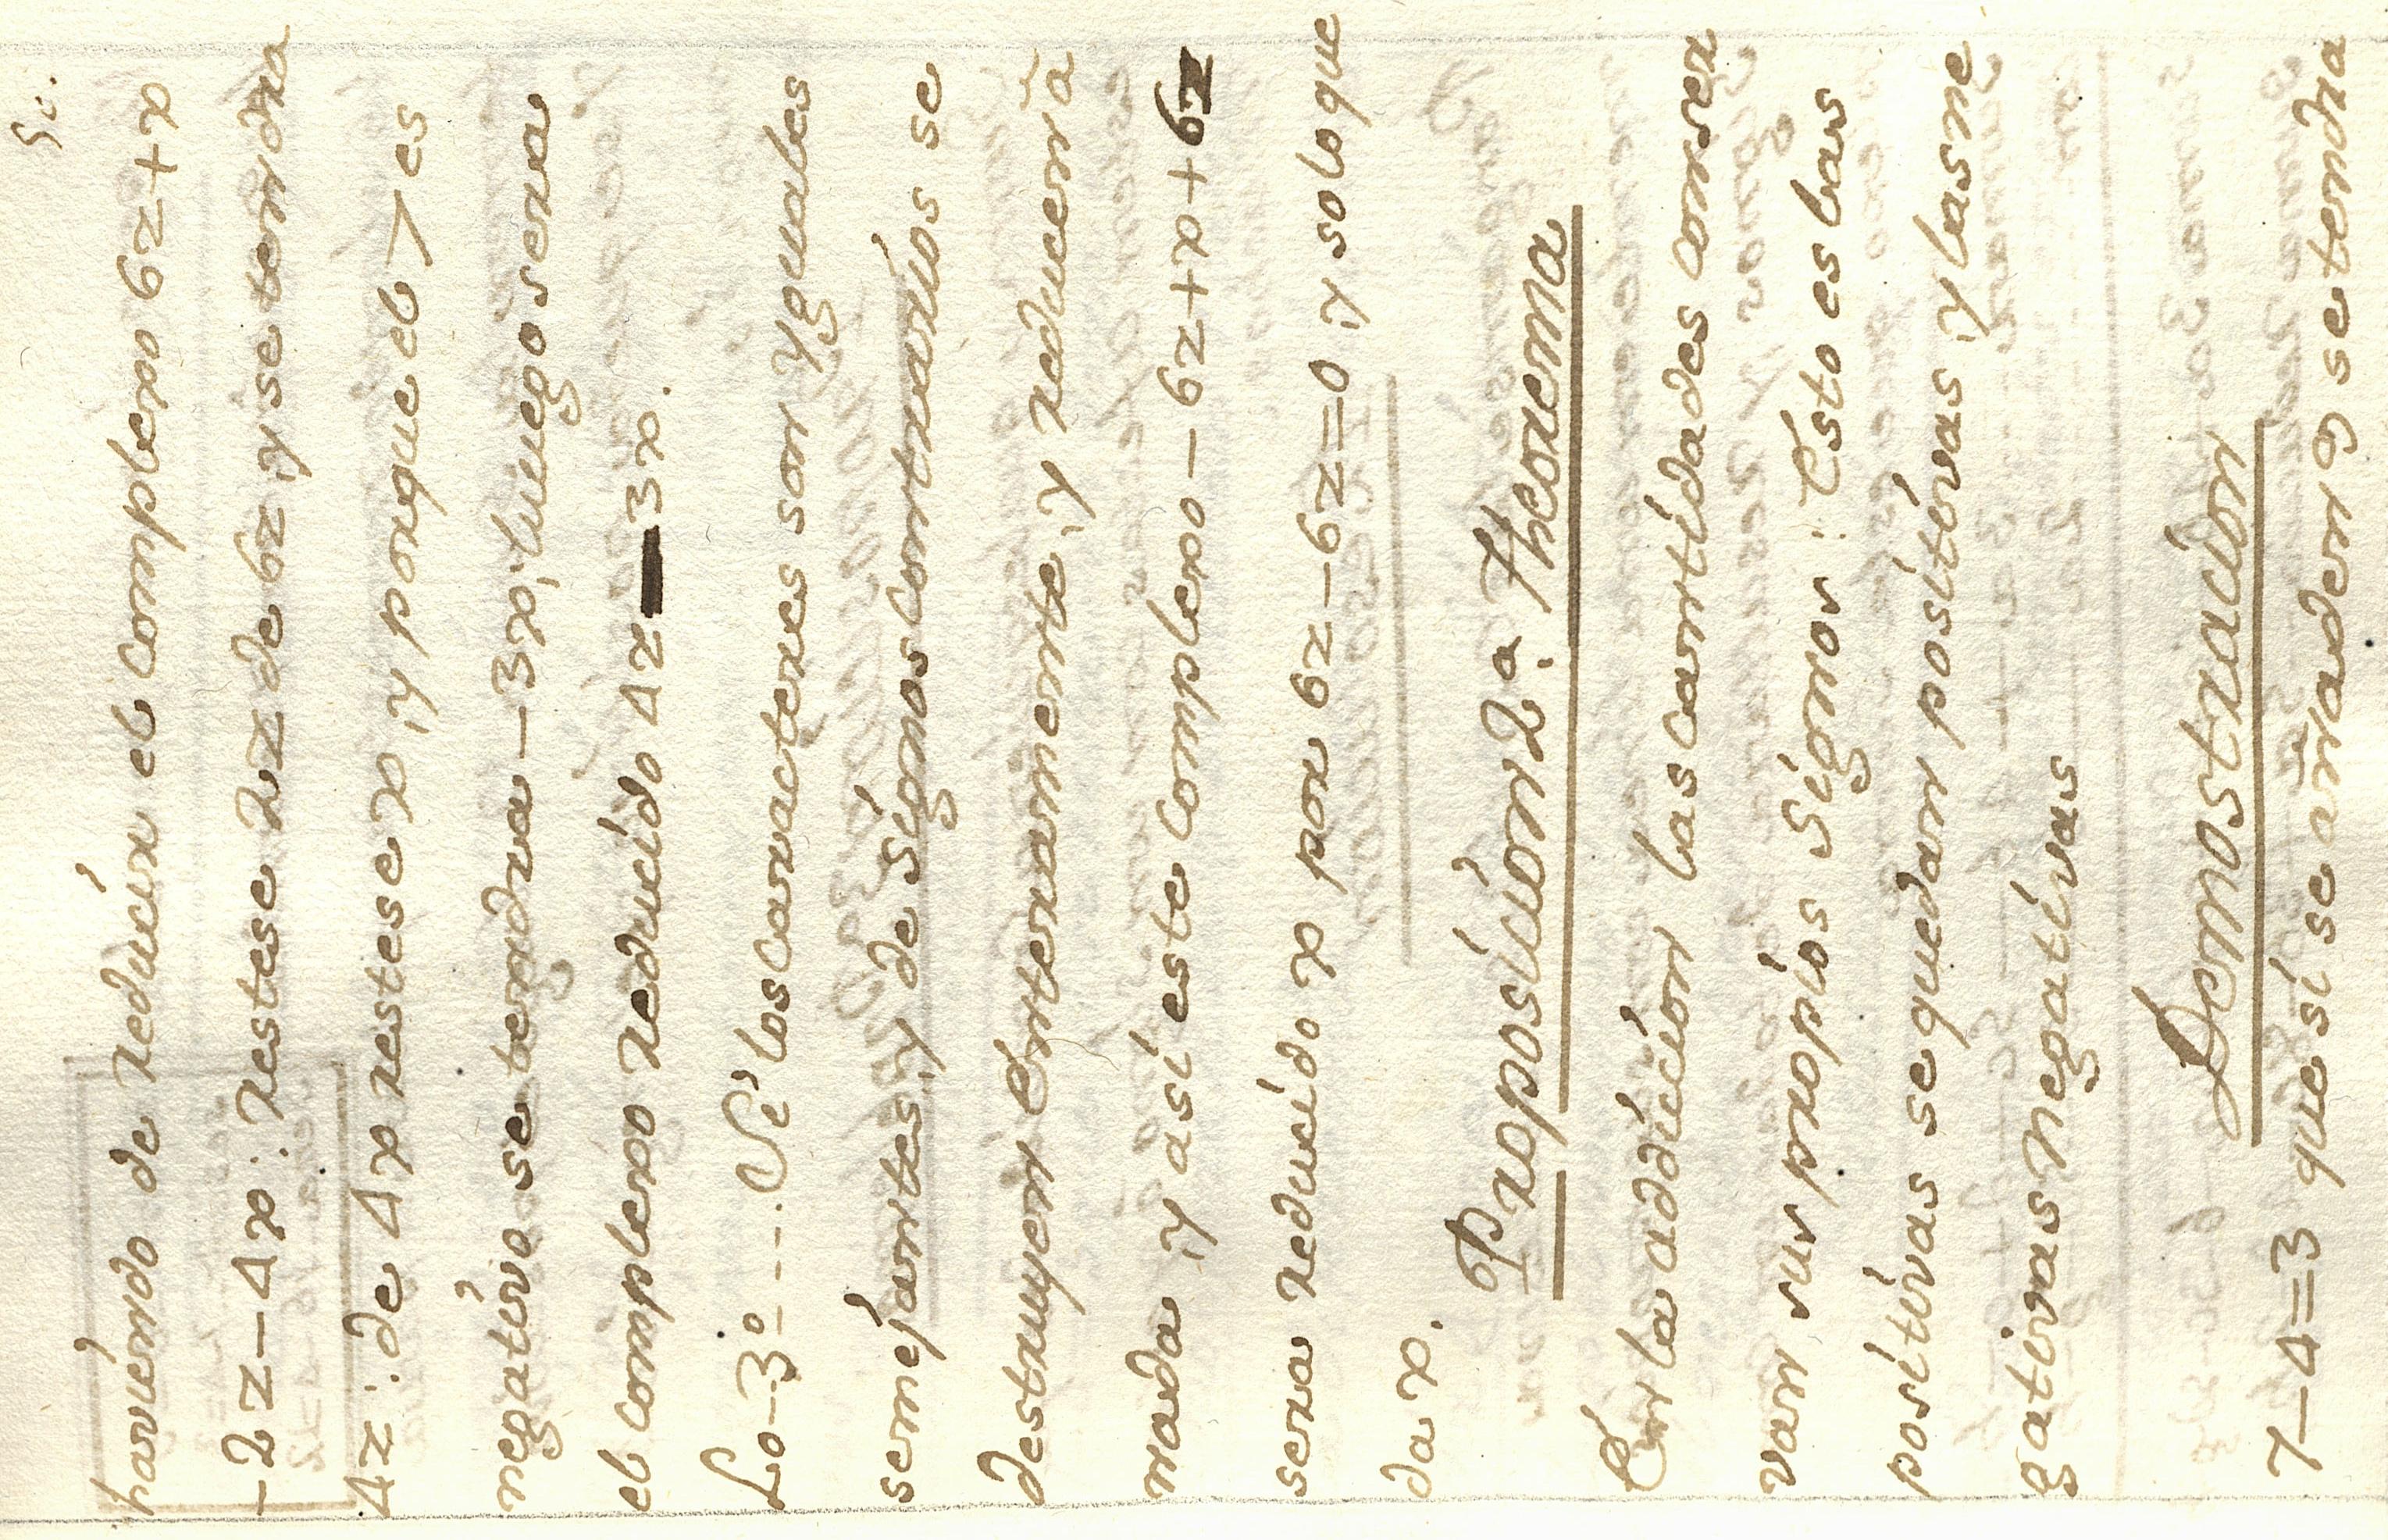 5v.
haviendo de reducir el complexo 6z+x
-2z-4x: restese 2z de 6z, y se tendra
4z: de 4x restese x, y porque el > es
negativo se tendra -3x, luego sera
el complexo reducido 4z-3x.
Lo-3º---- Si los caracteres son yguales
semejantes, y de signos contrarios se
destruyen Enteramente, y reducen à
nada, y asi este complexo -6z+x+6z
sera reducido x por 6z-6z=0, y solo que
da x.
Proposicion 2.ª Theorema
En la addicion las cantidades conser
van sus propios signos: Esto es las
positivas se quedan positivas, y las ne
gativas negativas
Demostracion
7-4=3 que si se añaden 9 se tendra